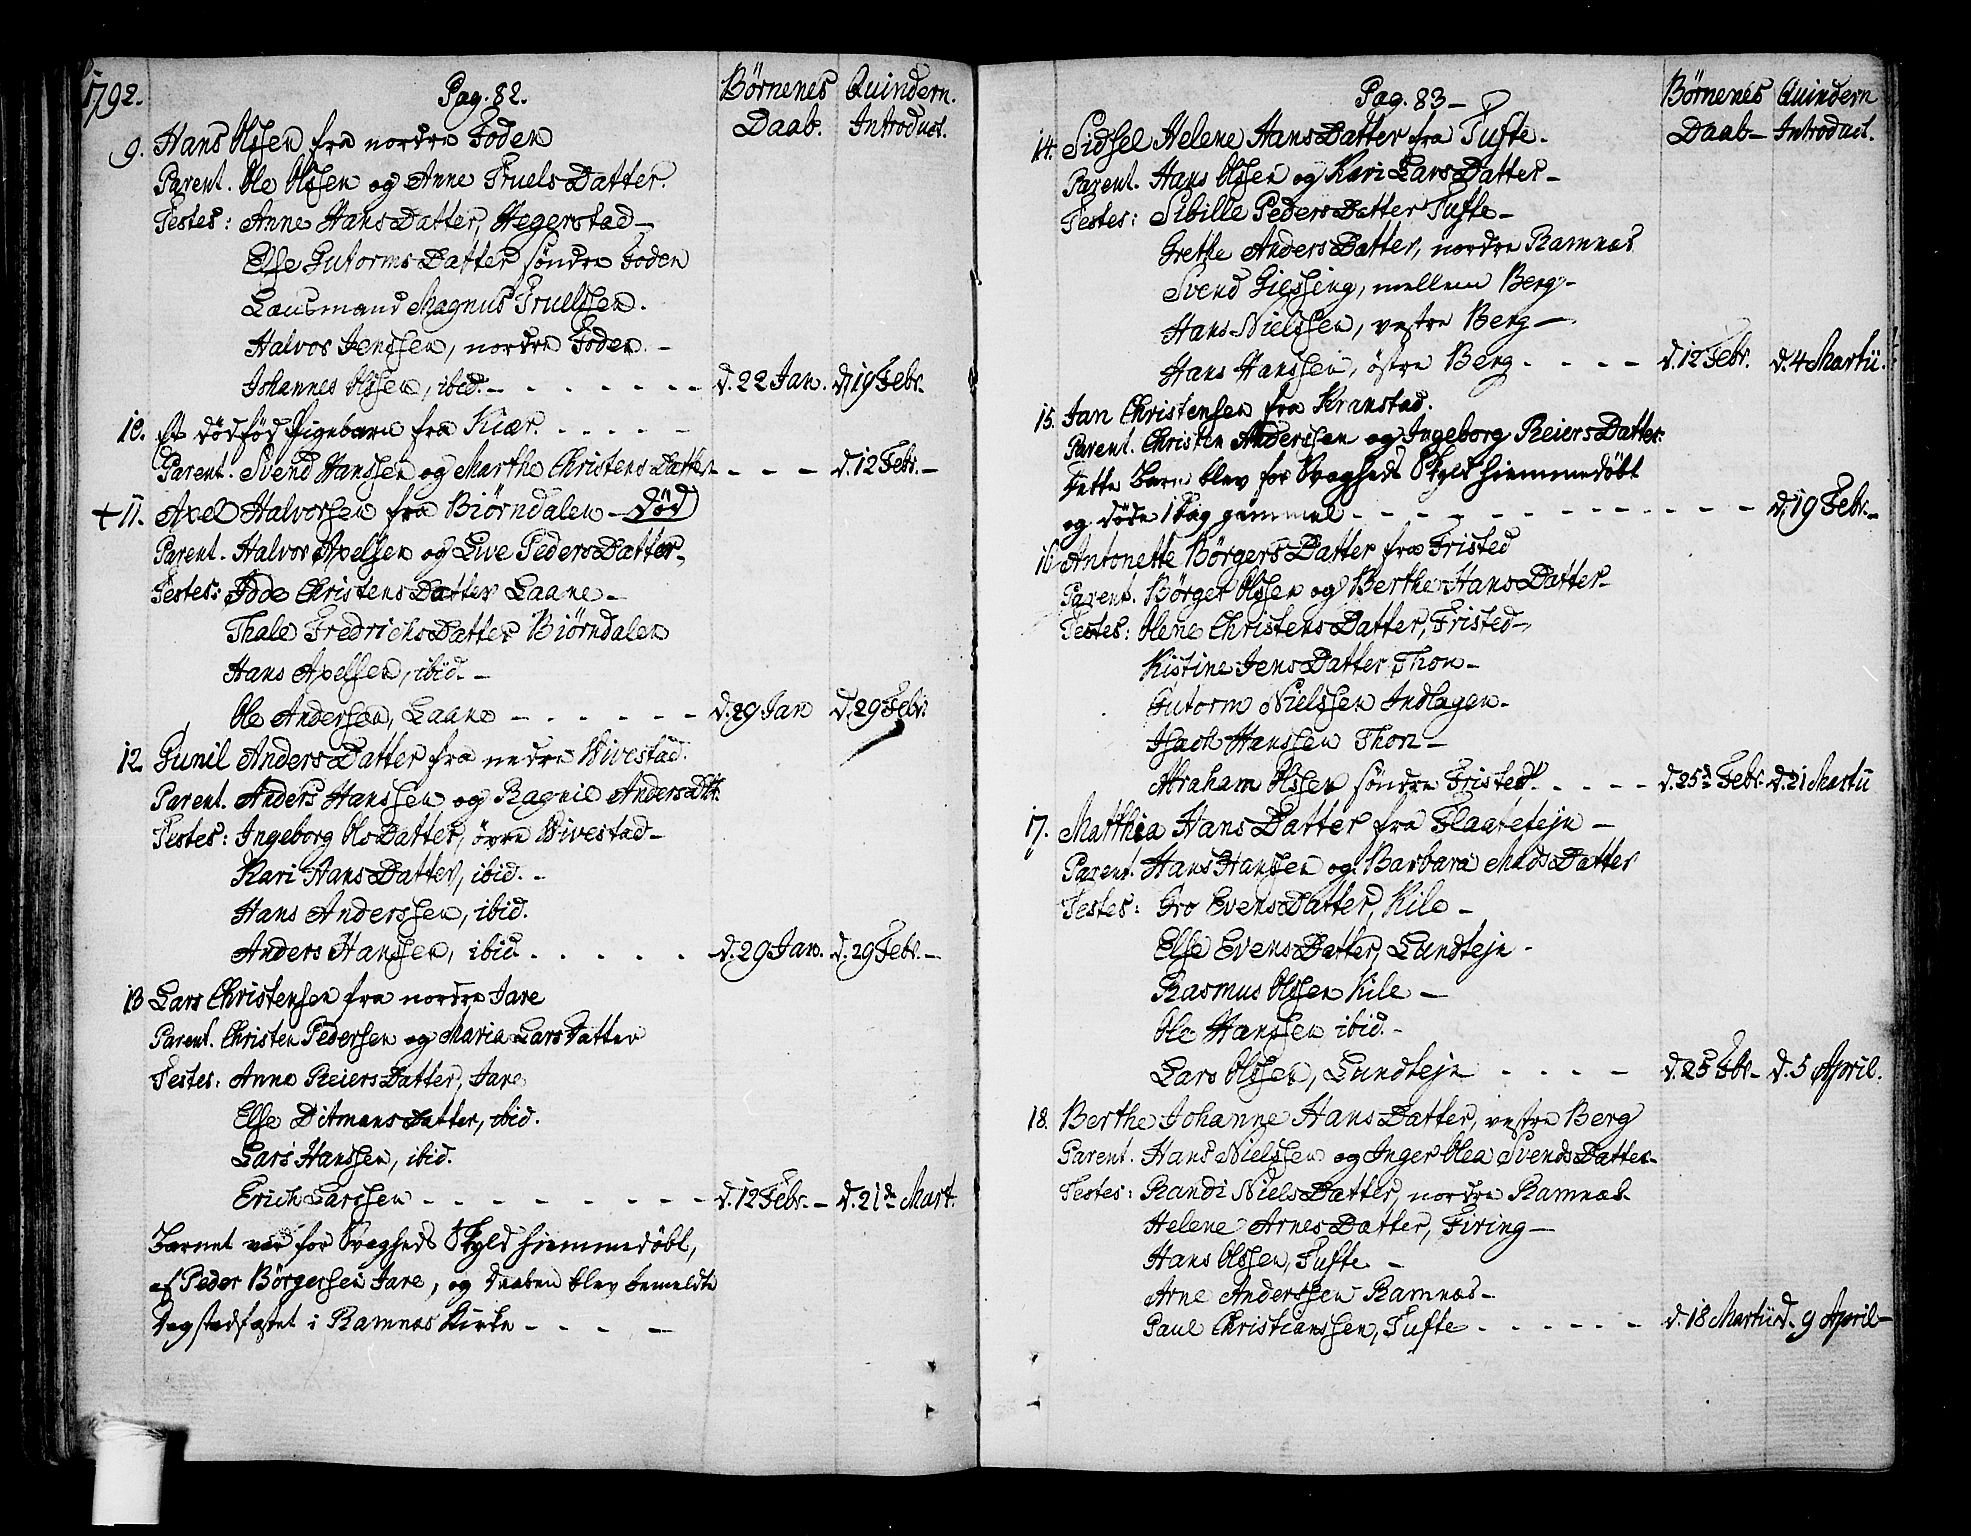 1792. Pag. 82. Børnenes Daab. Quindern. Introduct.
9. Hans Olssen fra nordre Foden
Parent. Ole Olssen og Anne Truels Datter.
Testes: Anne Hans Datter, Hegerstad
Else Gutorms Datter søndre Foden
Lausmand Magnus Truelssen.
Halvor Jenssen, nordre Foden. -
Johannes Olssen, ibid. - d. 22 Jan. d. 19 Febr.
10. Et dødfød Pigebarn fra Kiær.
Parent. Svend Hanssen og Marthe Christens Datter - - - d. 12 Febr. -
+ 11. Axel Halvorsen fra Biørndalen - død
Parent. Halvor Axelsen og Live Peders Datter.
Testes: Christens Datter Laane -
Thale Fredrichs Datter Biørndalen
Hans Axelssen, ibid. -
Ole Andersen, Laane - d. 29 Jan d. 29 Febr.
12. Gunil Anders Datter fra nedre Wivestad.
Parent. Anders Hanssen og Ragnil Anders Dtr.
Testes: Ingeborg Ols Datter, øvre Wivestad -
Kari Hans Datter, ibid. -
Hans Anderssen, ibid.
Anders Hanssen, ibid. d. 29 Jan. d. 29 Febr. -
13 Lars Christensen fra nordre Jare
Parent. Christen Pedersen og Maria Lars Datter
Testes: Anne Reiers Datter, Jare
Else Ditmans Datter, ibid.
Lars Hanssen, ibid.
Erich Larssen - d. 12 Febr. - d. 21de Mart.
Barnet var for Svagheds Skyld hiemmedøbt,
af Peder Børgersen Jare, og Daaben blev bemeldte
Dag stadfæstet i Ramnæs Kirke - - - -
Pag. 83 - Børnenes Daab - Quindern Introduct.
14. Sidsel Helene Hans Datter fra Tufte.
Parent. Hans Olssen og Kari Lars Datter -
Testes: Sibille Peders Datter Tufte -
Grethe Anders Datter, nordre Ramnæs
Svend Giessing, mellem Berg -
Hans Nielssen, vestre Berg -
Hans Hanssen, østre Berg - d. 12 Febr. d. 4 Martii.
15. Jan Christensen fra Kranstad.
Parent. Christen Anderssen og Ingeborg Reiers Datter.
Dette Barn blev for Svagheds Skyld hiemmedøbt
og døde 1 Dag gammel - d. 19 Febr. -
16 Antonette Børgers Datter fra Fristed
Parent. Børger Olssen og Berthe Hans Datter -
Testes: Olene Christens Datter, Fristed -
Kistine Jens Datter Thon -
Gutorm Nielssen Indlagen -
Isach Hanssen Thon -
Abraham Olssen søndre Fristed. d. 25de Febr. d. 21 Martii
17. Matthia Hans Datter fra Flaateteje -
Parent. Hans Hanssen og Barbara Mads Datter
Testes: Gro Evens Datter, Kile -
Else Evens Datter, Lundteje -
Rasmus Olssen Kile -
Ole Hanssen ibid. -
Lars Olssen, Lundteje d. 25 Febr - d. 5 April.
18. Berthe Johanne Hans Datter, vestre Berg
Parent. Hans Nielssen og Inger Olea Svends Datter -
Testes: Randi Niels Datter, nordre Ramnæs
Helene Arnes Datter, Firing -
Hans Olssen, Tufte -
Arne Anderssen Ramnæs -
Paul Christianssen, Tufte - d. 18 Martii d. 9 April -